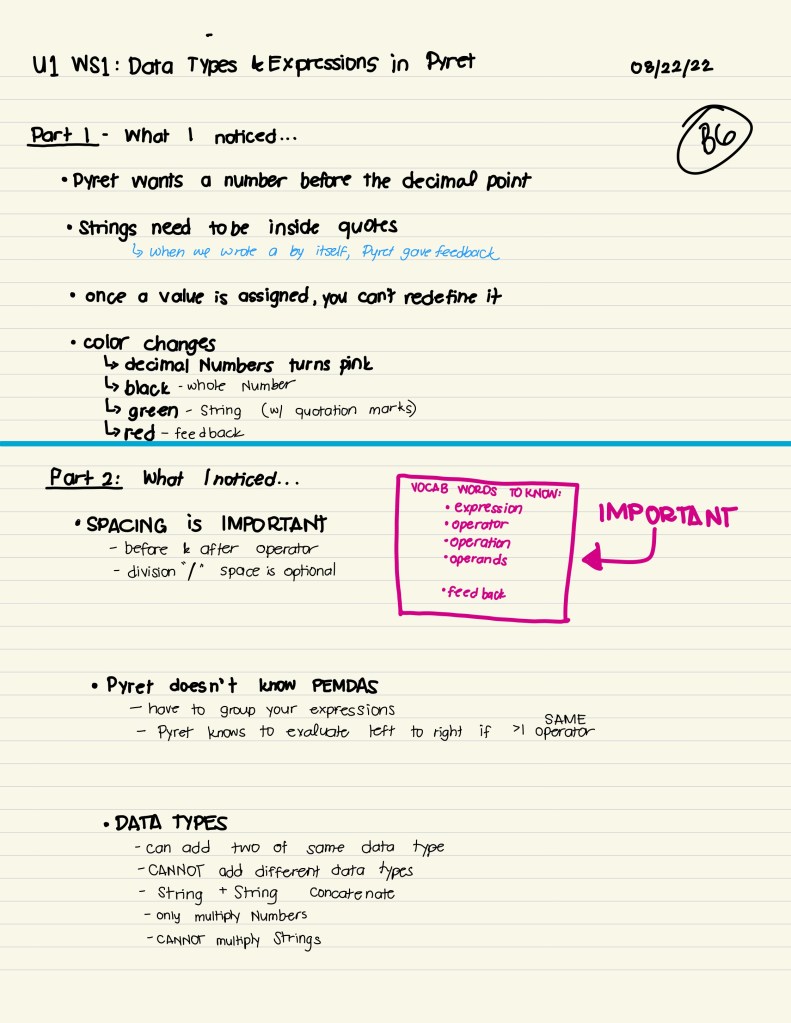 U1 WS1: Data Types & Expressions in Pyret
08/22/22
B6
Part 1 - What I noticed...
• Pyret wants a number before the decimal point
• Strings need to be inside quotes
↳ when we wrote a by itself, Pyret gave feedback
• once a value is assigned, you can't redefine it
• color changes
↳ decimal Numbers turns pink
↳ black - whole Number
↳ green - String (w/ quotation marks)
↳ red - feedback
Part 2: What I noticed...
• SPACING is IMPORTANT
- before & after operator
- division "/" space is optional
VOCAB WORDS TO KNOW:
• expression
• operator
• operation
• operands
• feedback
IMPORTANT
• Pyret doesn't know PEMDAS
- have to group your expressions
- Pyret knows to evaluate left to right if >1 SAME operator
• DATA TYPES
- can add two of same data type
- CANNOT add different data types
- String + String concatenate
- only multiply Numbers
- CANNOT multiply Strings